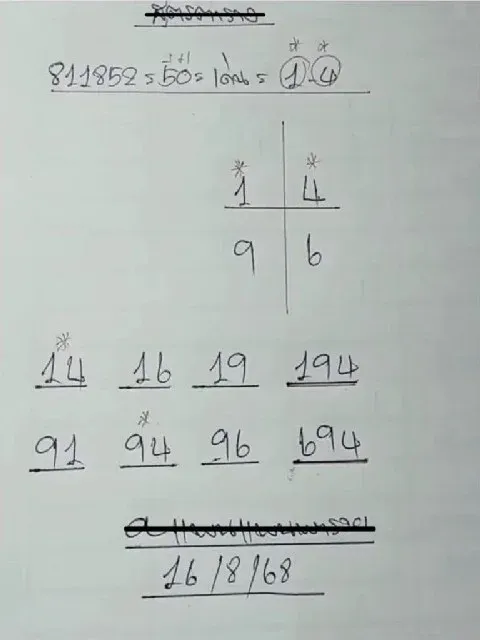 811852=50=เด่น=1.4
-1+1
1 4
9 6
14 16 19 194
91 94 96 694
16/8/68